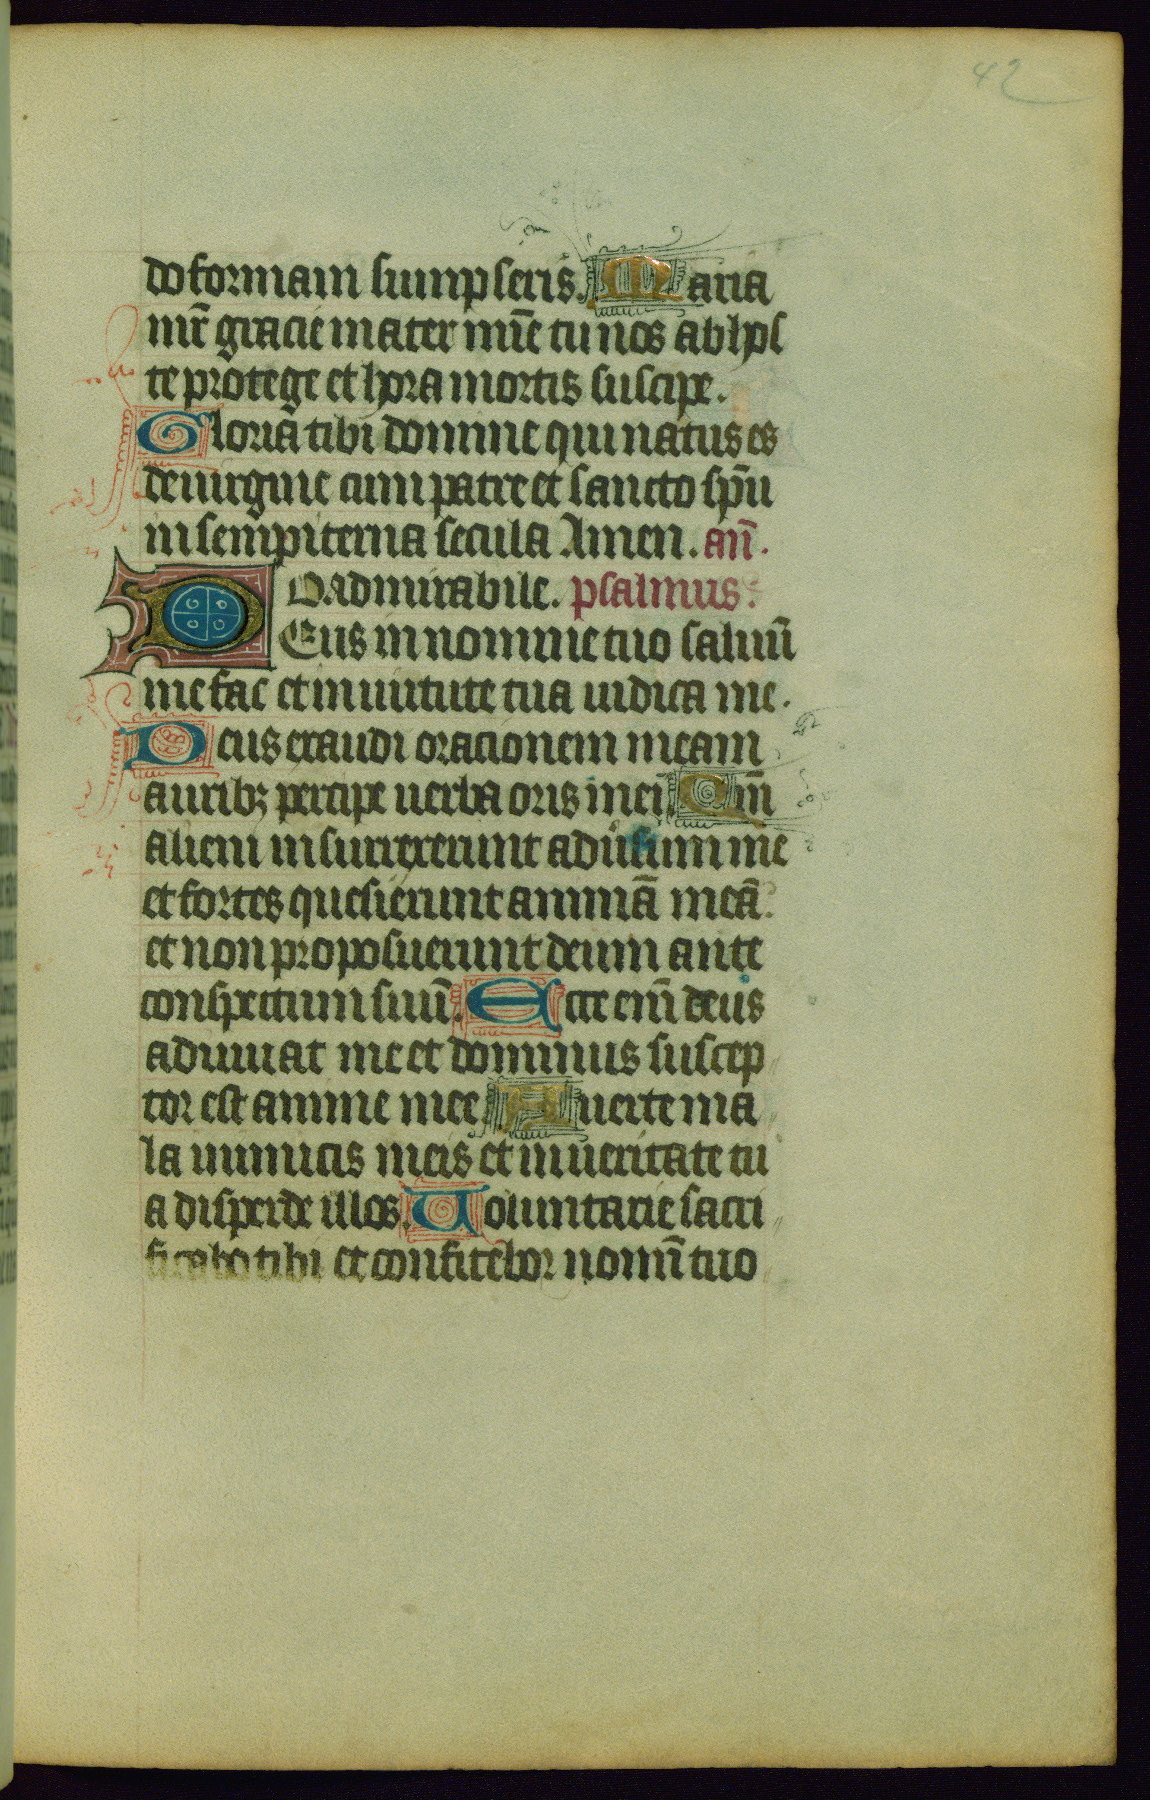 42
do formam sumpseris. Maria
mr̄ gracie mater mīe tu nos ab hos
te protege et hora mortis suscipe.
Gloria tibi domine qui natus es
de uirgine cum patre et sancto sp̄u
in sempiterna secula Amen. an̄.
O admirabile. psalmus.
DEus in nomine tuo saluū
me fac et in uirtute tua iudica me.
Deus exaudi oracionem meam
auribꝫ percipe uerba oris mei Qm̄
alieni insurrexerunt aduersum me
et fortes quesierunt animā meā.
et non proposuerunt deum ante
conspectum suū. Ecce em̄ deus
adiuuat me et dominus suscep
tor est anime mee Auerte ma
la inimicis meis et in ueritate tu
a disperde illos. Uoluntarie sacri
ficabo tibi et confitebor nomī tuo